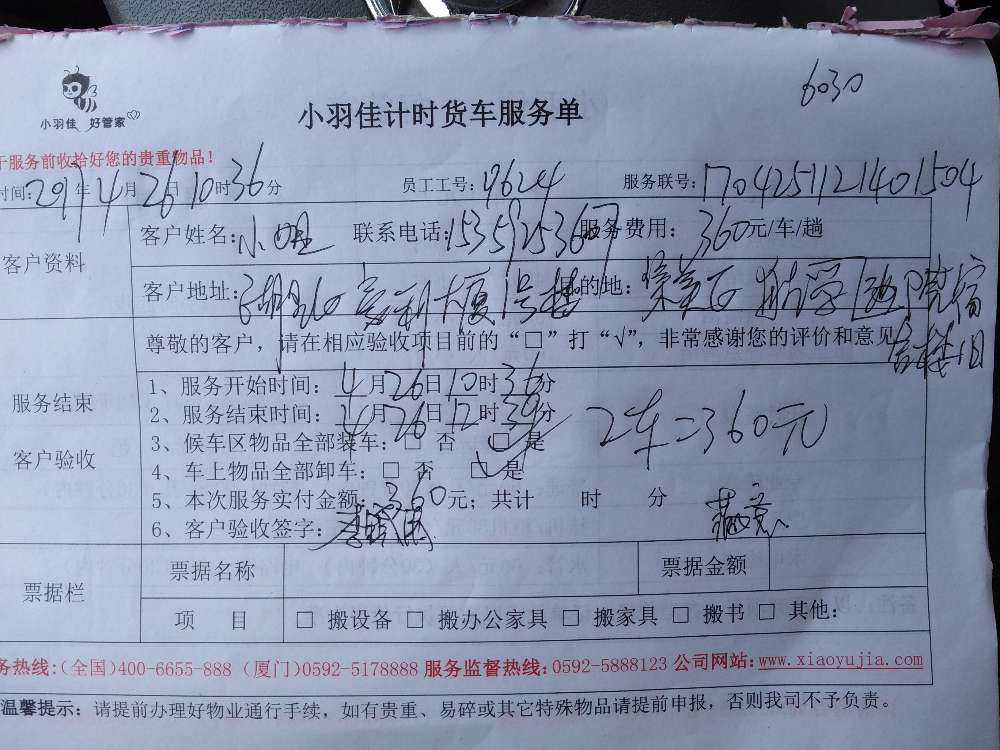 6030
小羽佳 好管家
小羽佳计时货车服务单
服务前收拾好您的贵重物品！
时间：2017年4月26日10时36分 员工工号：19624 服务联号：1704251121401504
客户资料
客户姓名：小 联系电话：15359253677 服务费用：360元/车/趟
客户地址：湖 大厦1号楼 目的地：集美区
宿舍楼
尊敬的客户，请在相应验收项目前的“□”打“√”，非常感谢您的评价和意见
服务结束
客户验收
1、服务开始时间：4月26日10时36分
2、服务结束时间：4月26日12时39分
3、候车区物品全部装车：□ 否 □ 是
2车=360元
4、车上物品全部卸车：□ 否 □ 是
5、本次服务实付金额：360元；共计 时 分
6、客户验收签字：
票据栏
票据名称 票据金额
项 目 □ 搬设备 □ 搬办公家具 □ 搬家具 □ 搬书 □ 其他：
务热线：(全国)400-6655-888 (厦门)0592-5178888 服务监督热线：0592-5888123 公司网站：www.xiaoyujia.com
温馨提示：请提前办理好物业通行手续，如有贵重、易碎或其它特殊物品请提前申报，否则我司不予负责。